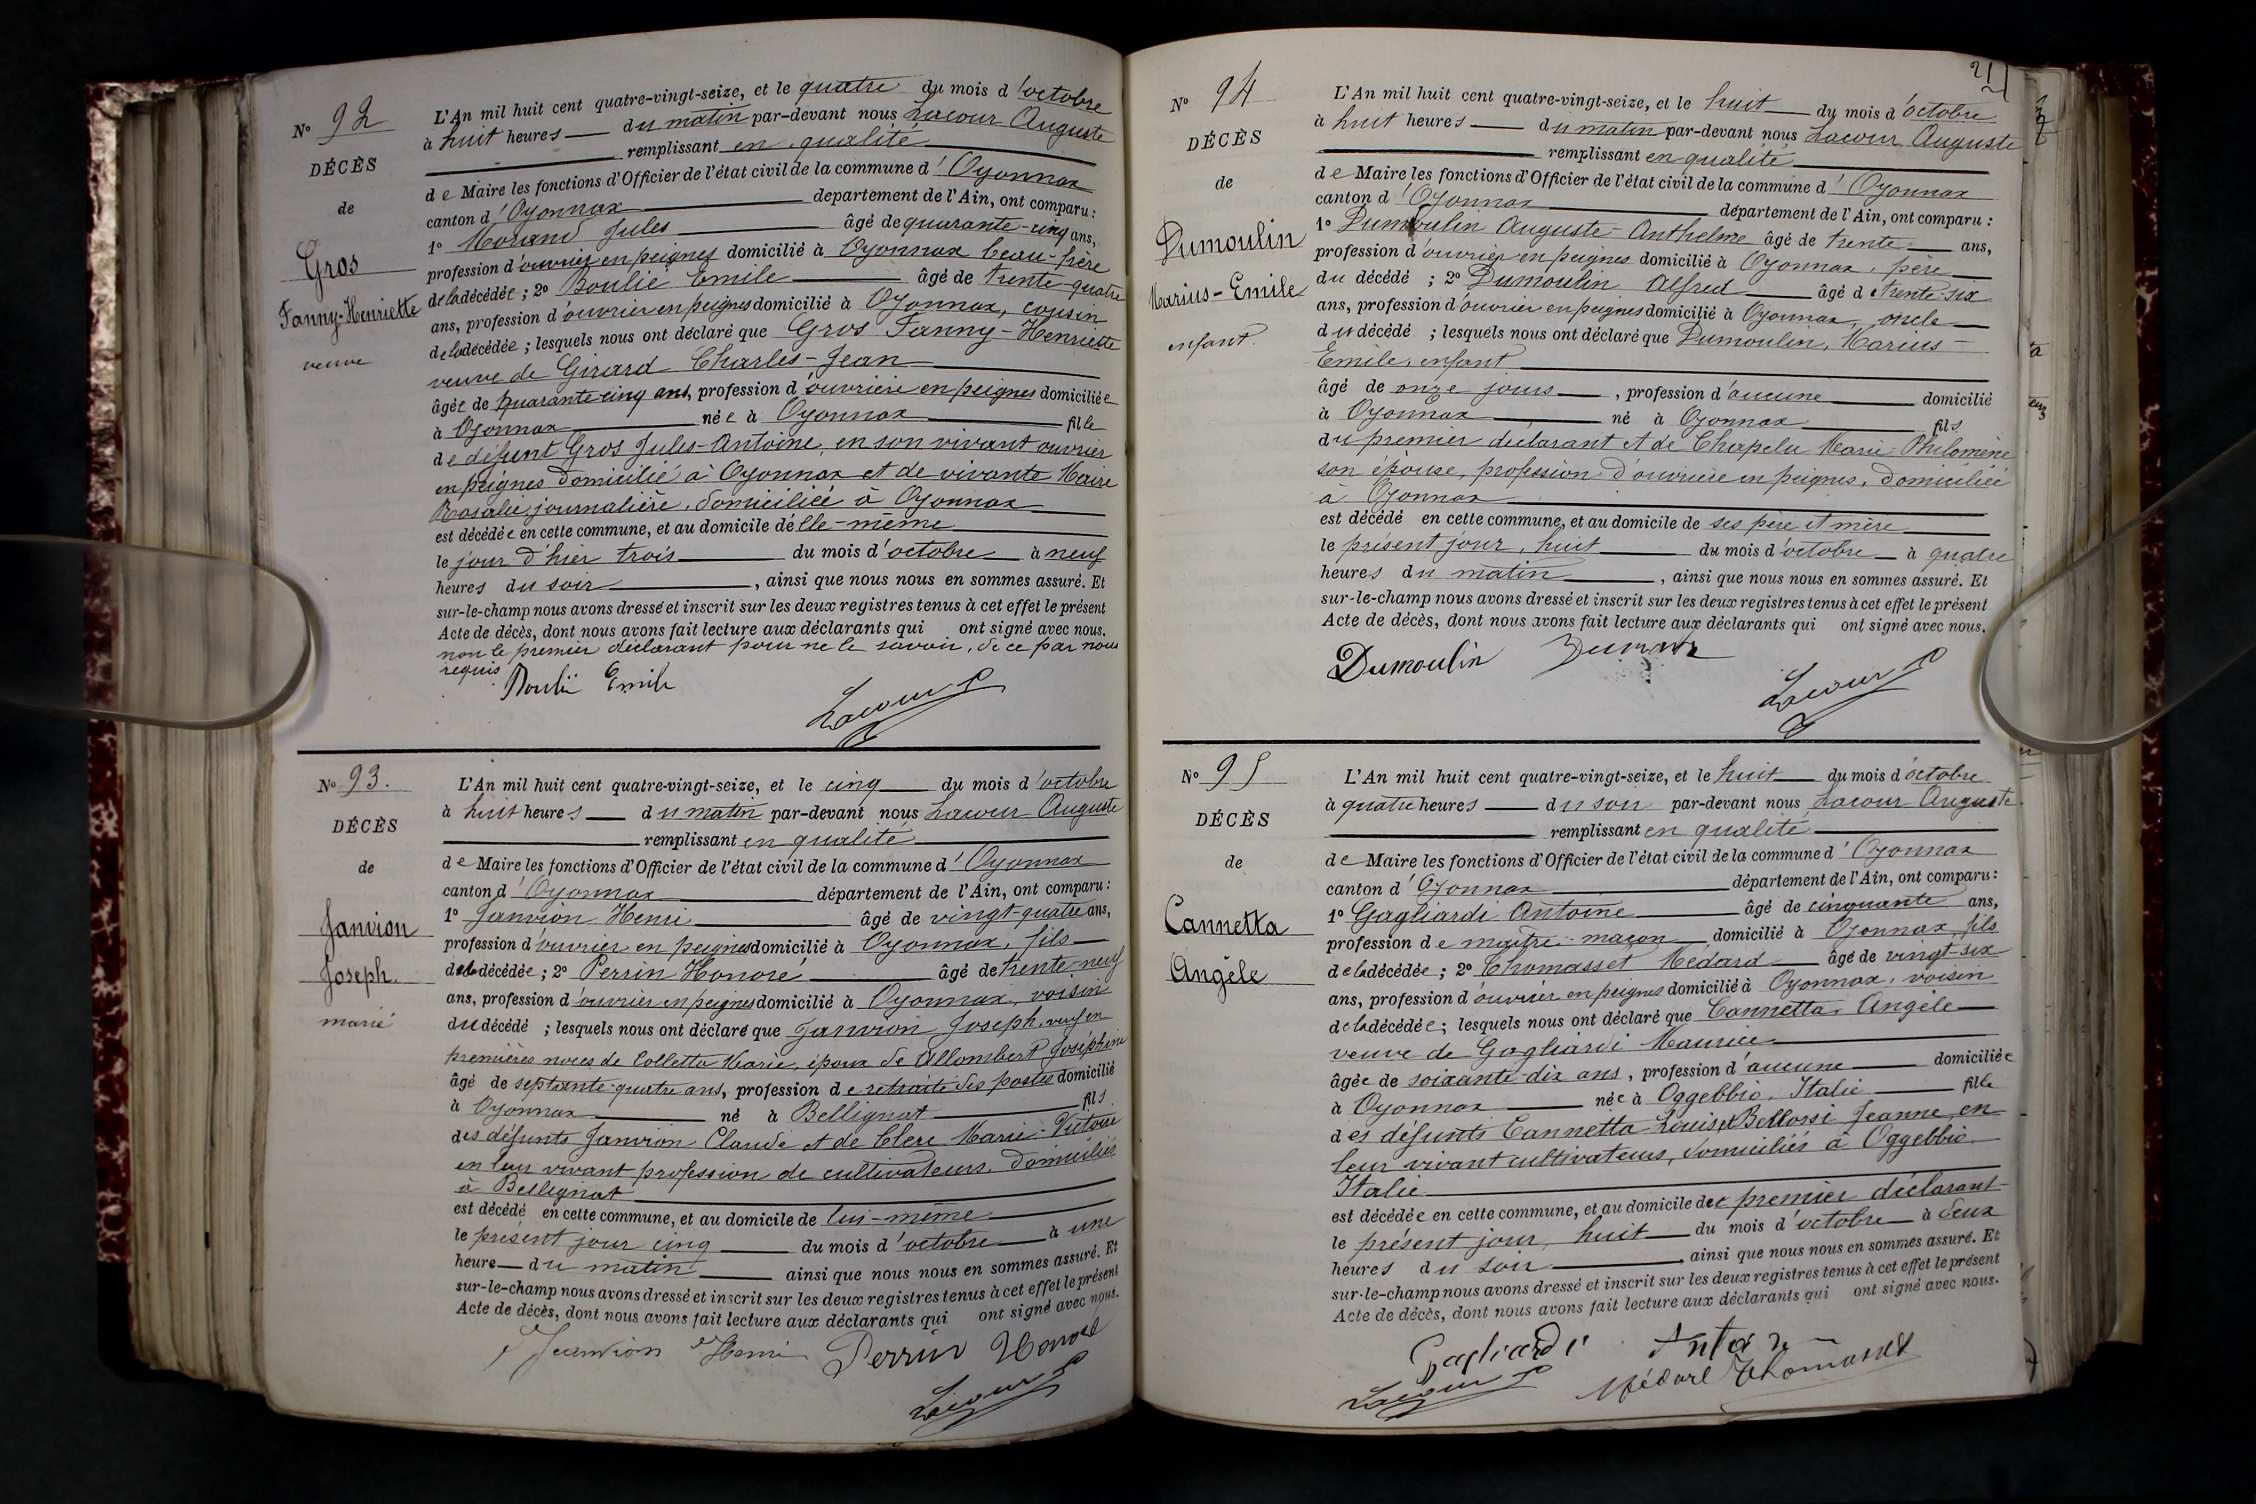 N° 92
DÉCÈS
de
Gros
Fanny-Henriette
veuve
L'An mil huit cent quatre-vingt-seize, et le quatre du mois d'octobre
à huit heures du matin par-devant nous Lacour Auguste
remplissant en qualité
de Maire les fonctions d'Officier de l'état civil de la commune d'Oyonnax
canton d'Oyonnax département de l'Ain, ont comparu :
1° Morand Jules âgé de quarante-cinq ans,
profession d'ouvrier en peignes domicilié à Oyonnax beau-frère
de la décédée ; 2° Boulié Emile âgé de trente-quatre
ans, profession d'ouvrier en peignes domicilié à Oyonnax, cousin
de la décédée ; lesquels nous ont déclaré que Gros Fanny-Henriette
veuve de Girard Charles-Jean
âgée de quarante-cinq ans, profession d'ouvrière en peignes domiciliée
à Oyonnax née à Oyonnax fille
de défunt Gros Jules-Antoine, en son vivant ouvrier
en peignes domicilié à Oyonnax et de vivante Maire
Rosalie, journalière, domiciliée à Oyonnax
est décédée en cette commune, et au domicile d'elle-même
le jour d'hier trois du mois d'octobre à neuf
heures du soir, ainsi que nous nous en sommes assuré. Et
sur-le-champ nous avons dressé et inscrit sur les deux registres tenus à cet effet le présent
Acte de décès, dont nous avons fait lecture aux déclarants qui ont signé avec nous.
non le premier déclarant pour ne le savoir, de ce par nous
requis
Boulié Emile
Lacour
N° 93.
DÉCÈS
de
Janvion
Joseph.
marié
L'An mil huit cent quatre-vingt-seize, et le cinq du mois d'octobre
à huit heures du matin par-devant nous Lacour Auguste
remplissant en qualité
de Maire les fonctions d'Officier de l'état civil de la commune d'Oyonnax
canton d'Oyonnax département de l'Ain, ont comparu :
1° Janvion Henri âgé de vingt-quatre ans,
profession d'ouvrier en peignes domicilié à Oyonnax, fils
de la décédée ; 2° Perrin Honoré âgé de trente-neuf
ans, profession d'ouvrier en peignes domicilié à Oyonnax, voisin
du décédé ; lesquels nous ont déclaré que Janvion Joseph, veuf en
premières noces de Colletta Marie, époux de Allombert Joséphine
âgé de septante-quatre ans, profession de retraité des postes domicilié
à Oyonnax né à Bellignat fils.
des défunts Janvion Claude et de Clerc Marie-Victoire
en leur vivant profession de cultivateurs, domiciliés
à Bellignat
est décédé en cette commune, et au domicile de lui-même
le présent jour cinq du mois d'octobre à une
heure du matin ainsi que nous nous en sommes assuré. Et
sur-le-champ nous avons dressé et inscrit sur les deux registres tenus à cet effet le présent
Acte de décès, dont nous avons fait lecture aux déclarants qui ont signé avec nous.
Janvion Henri Perrin Honoré
Lacour
N° 94
DÉCÈS
de
Dumoulin
Marius-Emile
enfant.
L'An mil huit cent quatre-vingt-seize, et le huit du mois d'octobre
à huit heures du matin par-devant nous Lacour Auguste
remplissant en qualité
de Maire les fonctions d'Officier de l'état civil de la commune d'Oyonnax
canton d'Oyonnax département de l'Ain, ont comparu :
1° Dumoulin Auguste-Anthelme âgé de trente ans,
profession d'ouvrier en peignes domicilié à Oyonnax, père
du décédé ; 2° Dumoulin Alfred âgé de trente-six
ans, profession d'ouvrier en peignes domicilié à Oyonnax, oncle
du décédé ; lesquels nous ont déclaré que Dumoulin, Marius-
Emile, enfant
âgé de onze jours, profession d'aucune domicilié
à Oyonnax né à Oyonnax fils
du premier déclarant et de Chapelu Marie-Philomène
son épouse, profession d'ouvrière en peignes, domiciliée
à Oyonnax
est décédé en cette commune, et au domicile de ses père et mère
le présent jour, huit du mois d'octobre à quatre
heures du matin, ainsi que nous nous en sommes assuré. Et
sur-le-champ nous avons dressé et inscrit sur les deux registres tenus à cet effet le présent
Acte de décès, dont nous avons fait lecture aux déclarants qui ont signé avec nous.
Dumoulin
Lacour
N° 95
DÉCÈS
de
Cannetta
Angèle
L'An mil huit cent quatre-vingt-seize, et le huit du mois d'octobre
à quatre heures du soir par-devant nous Lacour Auguste
remplissant en qualité
de Maire les fonctions d'Officier de l'état civil de la commune d'Oyonnax
canton d'Oyonnax département de l'Ain, ont comparu :
1° Gagliardi Antoine âgé de cinquante ans,
profession de maître-maçon domicilié à Oyonnax, fils
de la décédée ; 2° Thomasset Médard âgé de vingt-six
ans, profession d'ouvrier en peignes domicilié à Oyonnax, voisin
de la décédée ; lesquels nous ont déclaré que Cannetta, Angèle
veuve de Gagliardi Maurice
âgée de soixante-dix ans, profession d'aucune domiciliée
à Oyonnax née à Oggebbio, Italie fille
des défunts Cannetta Louis et Bellossi Jeanne, en
leur vivant cultivateurs, domiciliés à Oggebbio
Italie
est décédée en cette commune, et au domicile de premier déclarant
le présent jour, huit du mois d'octobre à deux
heures du soir, ainsi que nous nous en sommes assuré. Et
sur-le-champ nous avons dressé et inscrit sur les deux registres tenus à cet effet le présent
Acte de décès, dont nous avons fait lecture aux déclarants qui ont signé avec nous.
Gagliardi
Lacour Médard Thomasset